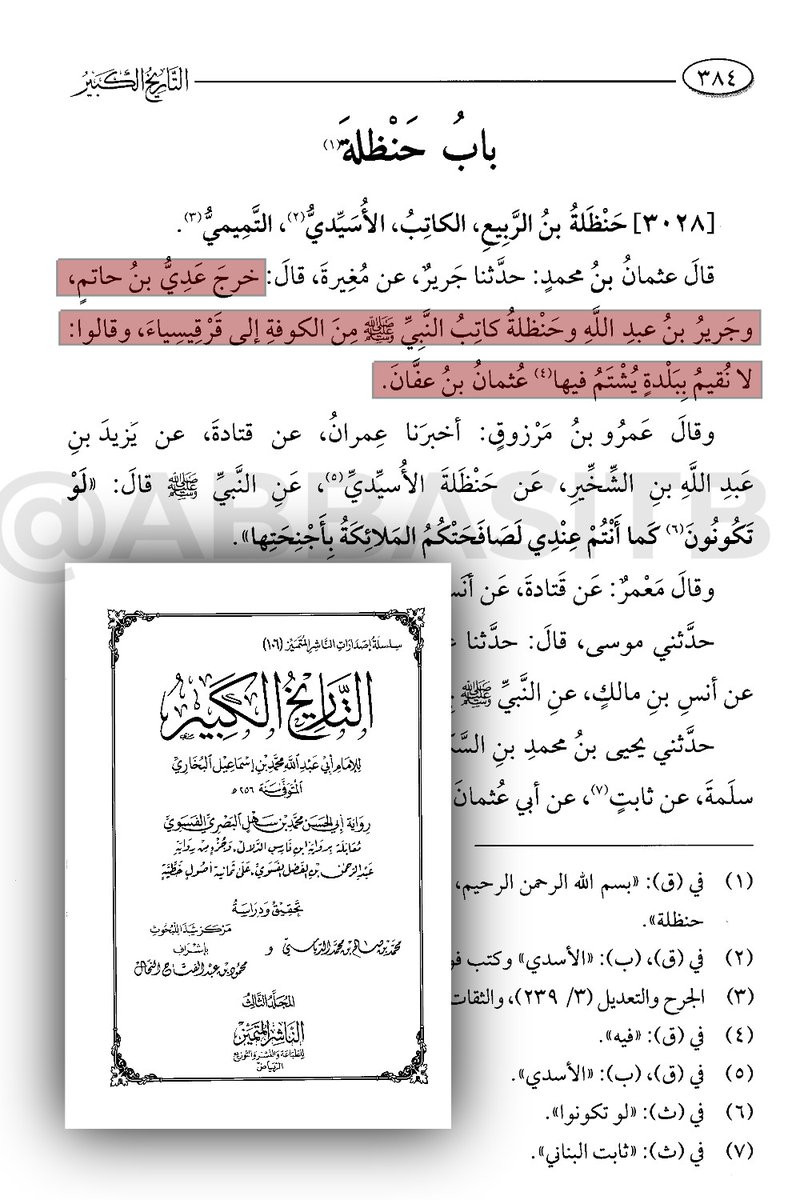 ٣٨٤
التاريخ الكبير
بابُ حَنْظلةَ(١)
[٣٠٢٨] حَنْظَلةُ بنُ الرَّبِيعِ، الكاتِبُ، الأُسَيِّديُّ(٢)، التَّمِيميُّ(٣).
قالَ عثمانُ بنُ محمدٍ: حدَّثنا جَريرٌ، عن مُغِيرةَ، قالَ: خرجَ عَدِيُّ بنُ حاتمٍ،
وجَريرُ بنُ عبدِ اللَّهِ وحَنْظلةُ كاتِبُ النَّبِيِّ ﷺ مِنَ الكوفةِ إلى قَرْقِيسِياءَ، وقالوا:
لا نُقيمُ بِبَلْدةٍ يُشْتَمُ فيها(٤) عُثمانُ بنُ عفَّانَ.
وقالَ عَمرُو بنُ مَرْزوقٍ: أخبرَنا عِمرانُ، عن قتادةَ، عن يَزيدَ بنِ
عَبدِ اللَّهِ بنِ الشِّخِّيرِ، عَن حَنْظَلةَ الأُسيِّديِّ(٥)، عَنِ النَّبيِّ ﷺ قالَ: «لَوْ
تَكُونُونَ(٦) كَما أَنْتُمْ عِنْدِي لَصَافَحَتْكُمُ المَلائِكَةُ بِأَجْنِحَتِها».
وقالَ مَعْمرٌ: عَن قَتادةَ، عَن أنَس
حدَّثني موسى، قالَ: حدَّثنا
عن أنسِ بنِ مالكٍ، عنِ النَّبيِّ ﷺ
حدَّثني يحيى بنُ محمدِ بنِ السَّكَ
سلَمةَ، عن ثابتٍ(٧)، عن أبي عُثمانَ
(١) في (ق): «بسم الله الرحمن الرحيم،
حنظلة».
(٢) في (ق)، (ب): «الأسدي» وكتب فو
(٣) الجرح والتعديل (٣/ ٢٣٩)، والثقات
(٤) في (ق): «فيه».
(٥) في (ق)، (ب): «الأسدي».
(٦) في (ث): «لو تكونوا».
(٧) في (ث): «ثابت البناني».
سلسلة إصدارات الناشر المتميز (١٠٦)
التاريخ الكبير
للإمام أبي عبد الله محمد بن إسماعيل البخاري
المتوفى سنة ٢٥٦ هـ
رواية أبي الحسن محمد بن سهل البصري الفسوي
مقابلة برواية ابن فارس الدلال، وجزء من رواية
عبد الرحمن بن الفضل الفسوي، على ثمانية أصول خطية
تحقيق ودراسة
محمد بن صالح بن محمد الدباسي و مركز شذا للبحوث
بإشراف
محمود بن عبد الفتاح النحال
المجلد الثالث
الناشر المتميز
للطباعة والنشر والتوزيع
الرياض
@ABBASITB